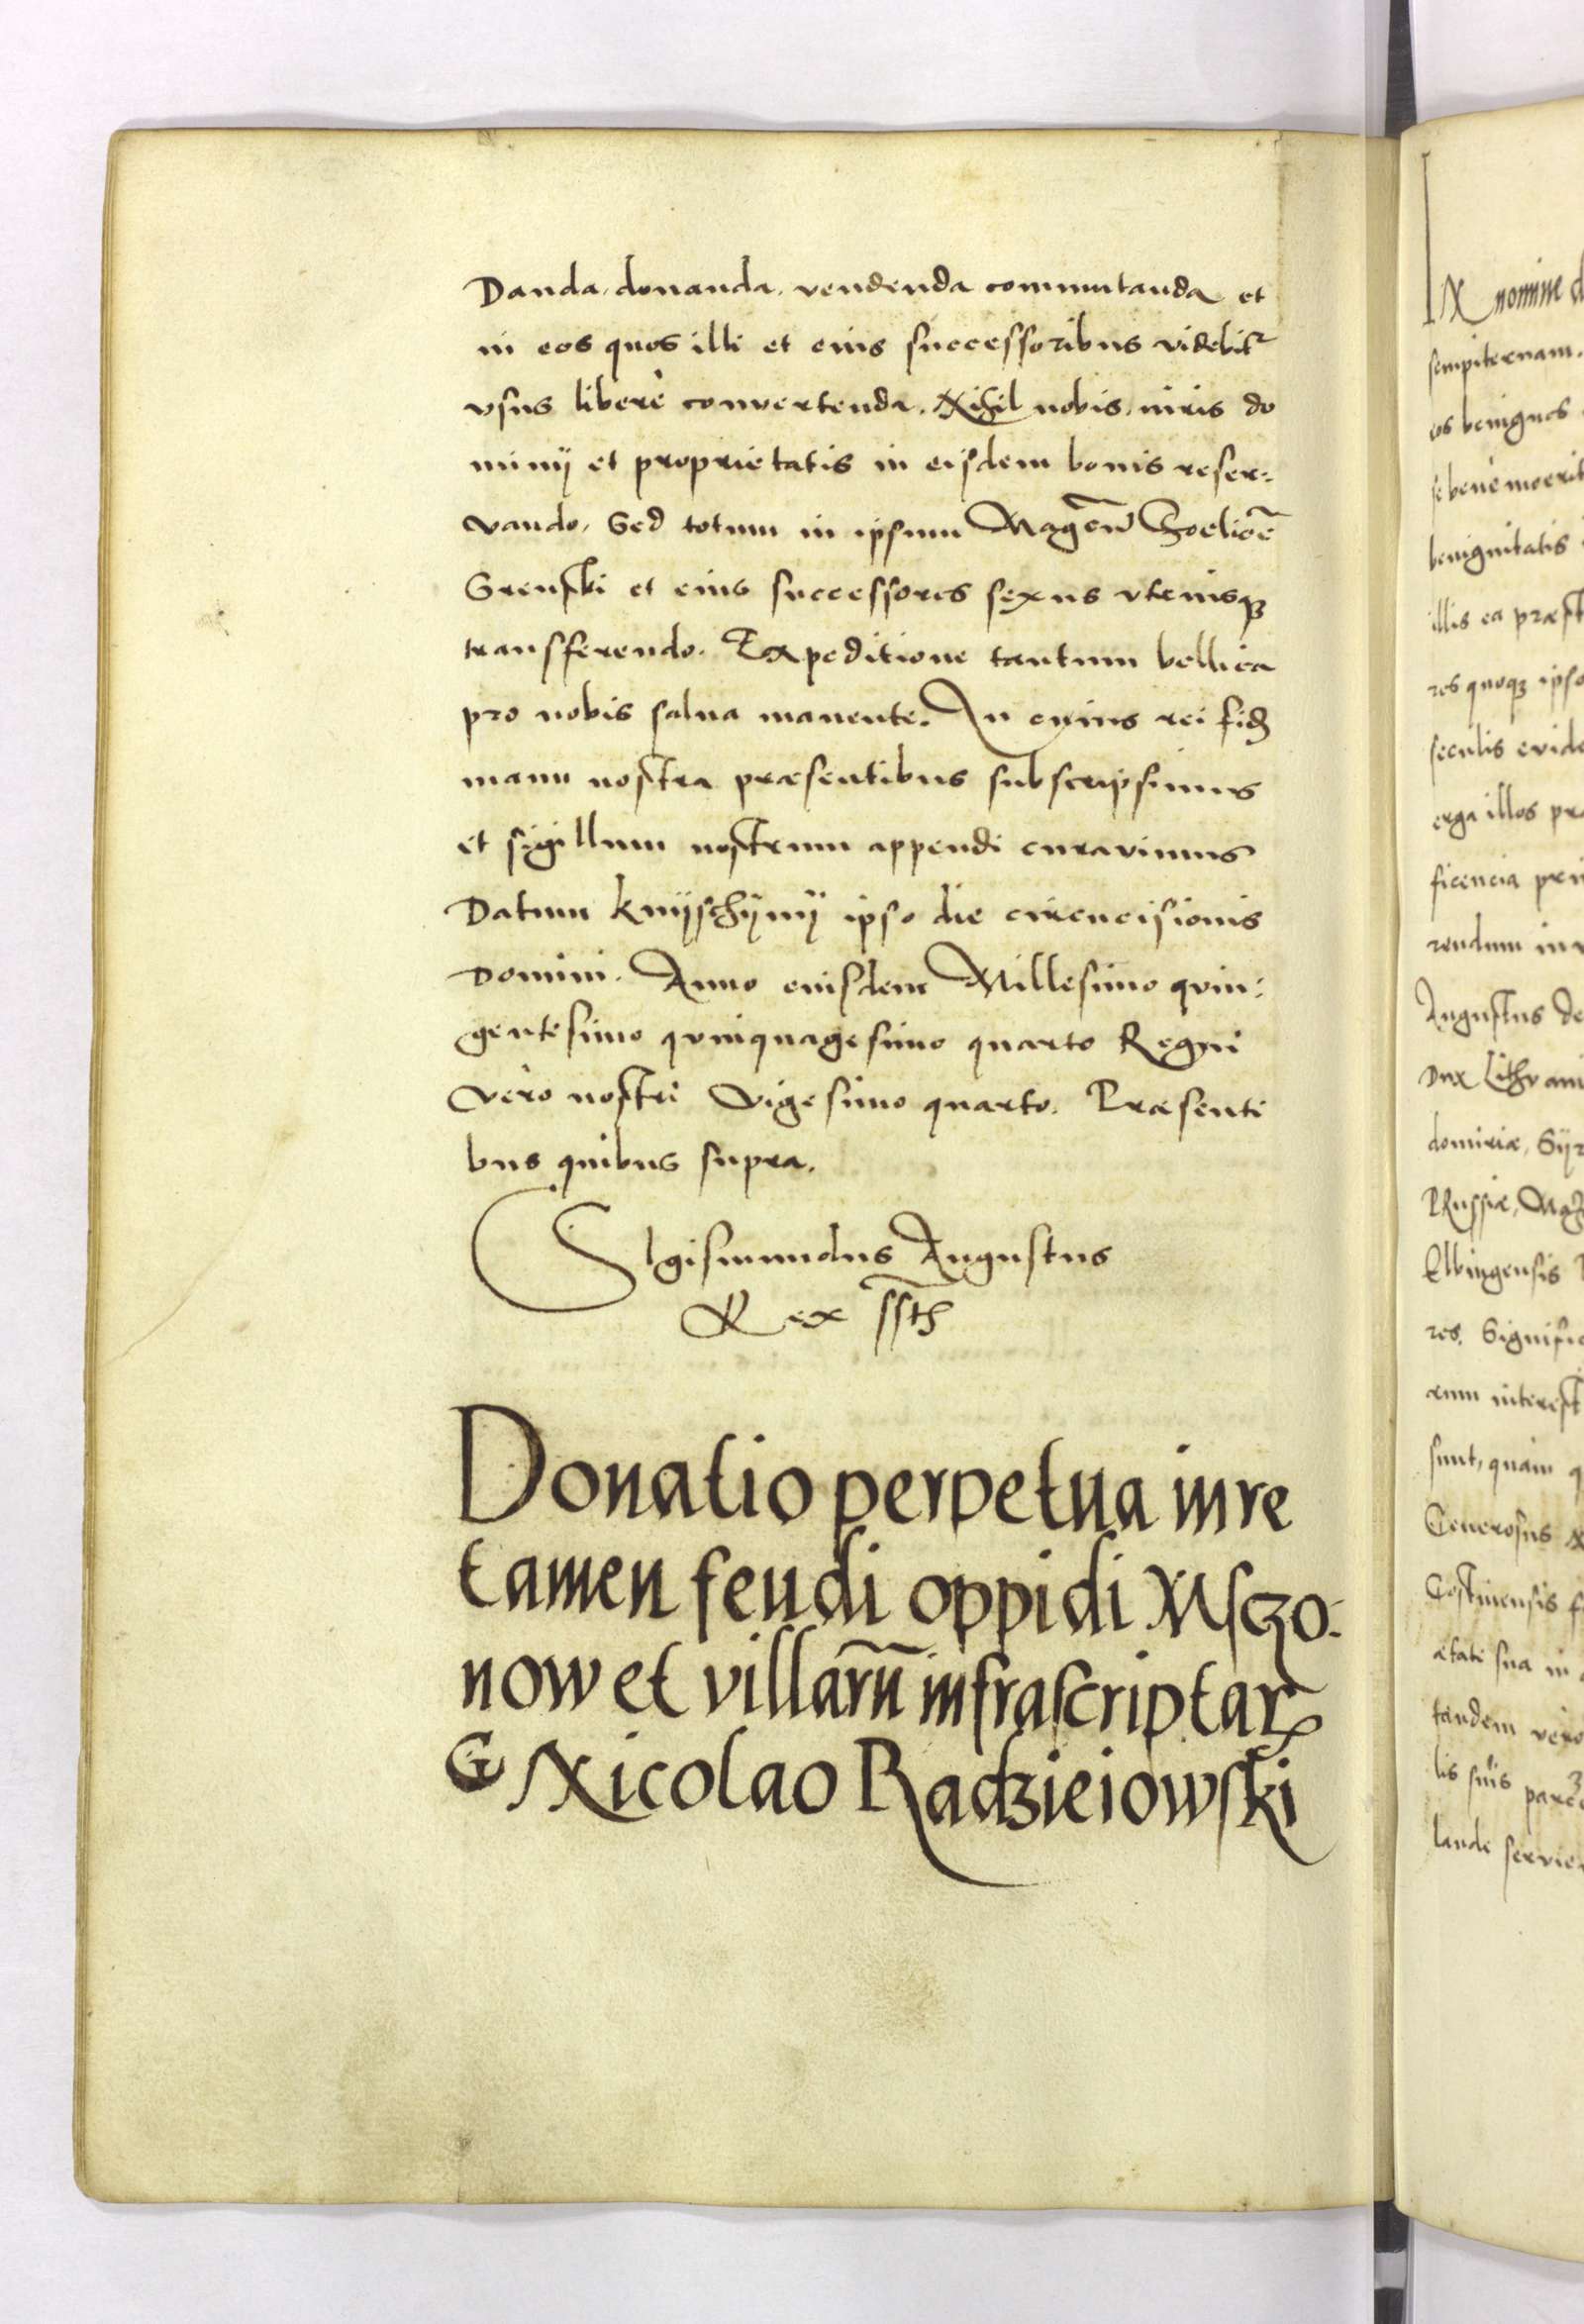 Danda, donanda, vendenda commutanda et
in eos quos illi et eius successoribus videbitr
vsus liberè convertenda. Nihil nobis iuris do
minij et proprietatis in eijsdem bonis reser=
vando, Sed totum in ipsum
et eius successores sexus vtriusqꝫ
transferendo. Expeditione tantum bellica
pro nobis salua manente. In cuius rei fidē
manu nostra præsentibus subscripsimus
et sigillum nostrum appendi curavimus
Datum Knijschÿnij ipso die circumcisionis
Domini. Anno eiusdem Millesimo quin=
gentesimo quinquagesimo quarto Regni
vero nostri Vigesimo quarto. Præsenti
bus quibus supra.
SIgismundus Augustus
Rex sst
Donatio perpetua iure
tamen feudi oppidi Msczo=
now et villarū infrascriptaꝝ
G Nicolao Radzieiowski
IN nomine d
sempiternam.
os benignos
se bene
benignitatis
illis ea præst
res quoqꝫ ipso
seculis evide
erga illos pr
ficencia pri
rendum in
Augustus De
Dux Lithvani
domiriæ, Syr
Prussiæ, Ma
Elbingensis
res. Signific
rum interest
sunt, quàm q
Generosus
Gostinensis f
ætate sua in
tandem vero
lis suis
laude servie